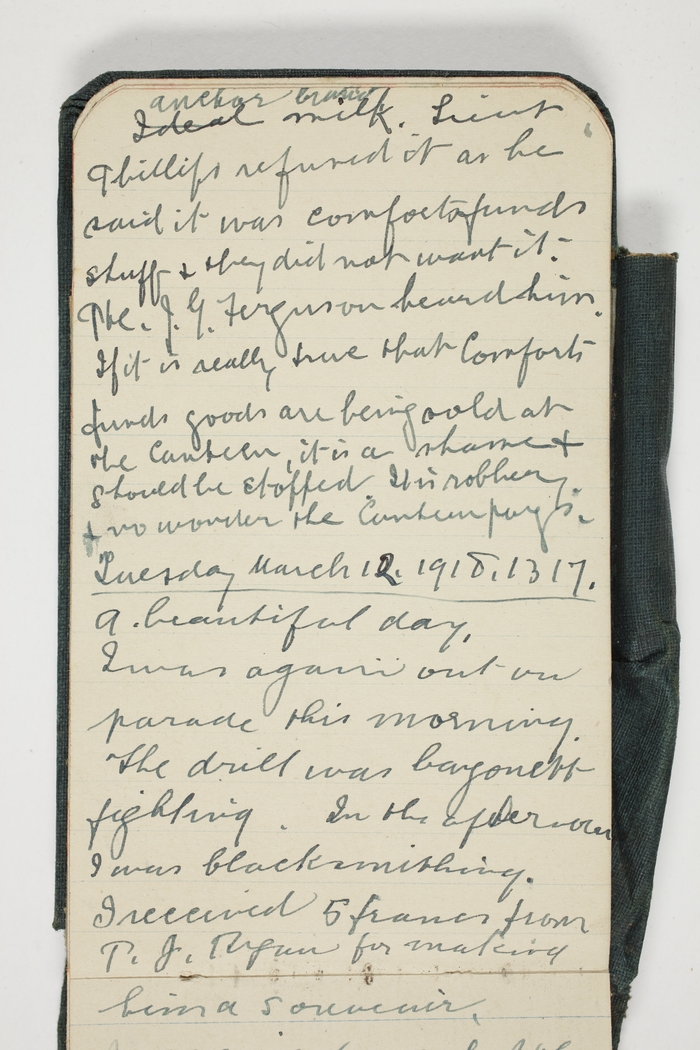 anchor brand
Ideal milk. Lieut
Phillips refused it as he
said it was comfortsfunds
stuff & they did not want it.
Pte. J. G. Ferguson heard him.
If it is really true that Comforts
funds goods are being sold at
the Canteen, it is a shame &
should be stopped. It is robbery.
& no wonder the Canteen pays.
Tuesday March 12. 1918. 1317.
A. beautiful day.
I was again out on
parade this morning.
The drill was bayonett
fighting. In the afternoon
I was blacksmithing.
I received 5 francs from
P. J. Ryan for making
him a souvenir.